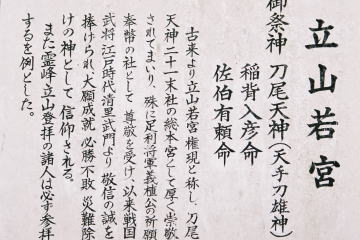 立山若宮
御祭神 刀尾天神(天手刀雄神)
稲背入彦命
佐伯有頼命
古来より立山若宮権現と称し、刀尾
天神二十一末社の総本宮として厚く崇敬
されてまいり、殊に足利将軍義植公の祈願
奉幣の社として 尊敬を受け、以来戦国
武将、江戸時代清里武門より 敬信の誠を
捧げられ、大願成就 必勝不敗 災難除
けの神として 信仰される。
また霊峰立山登拝の諸人は必ず参拝
するを例とした。